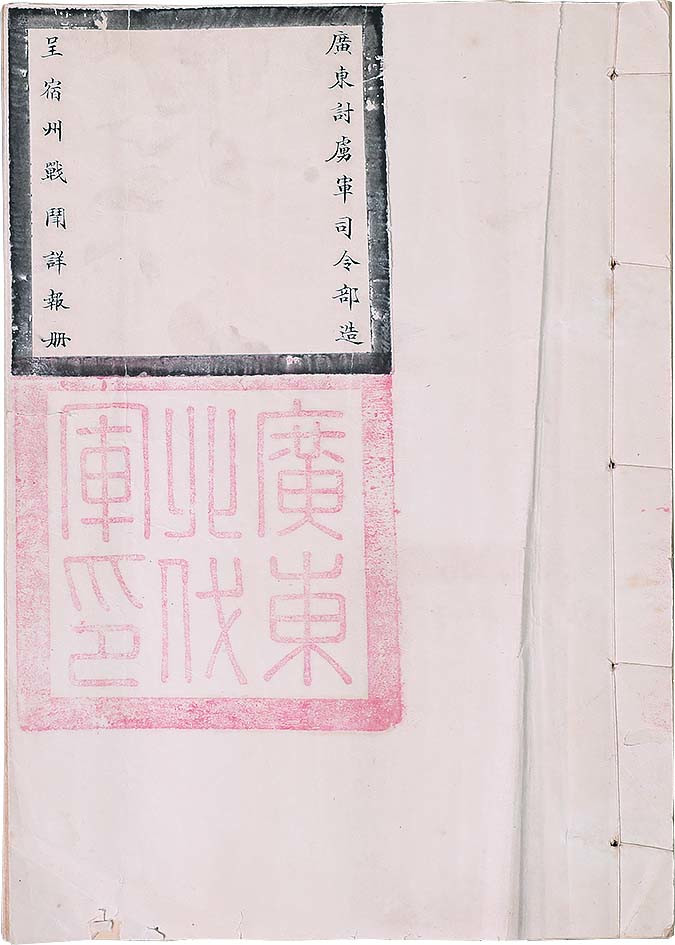 廣東討虜軍司令部造
呈宿州戰鬪詳報册
廣東
北伐
軍印